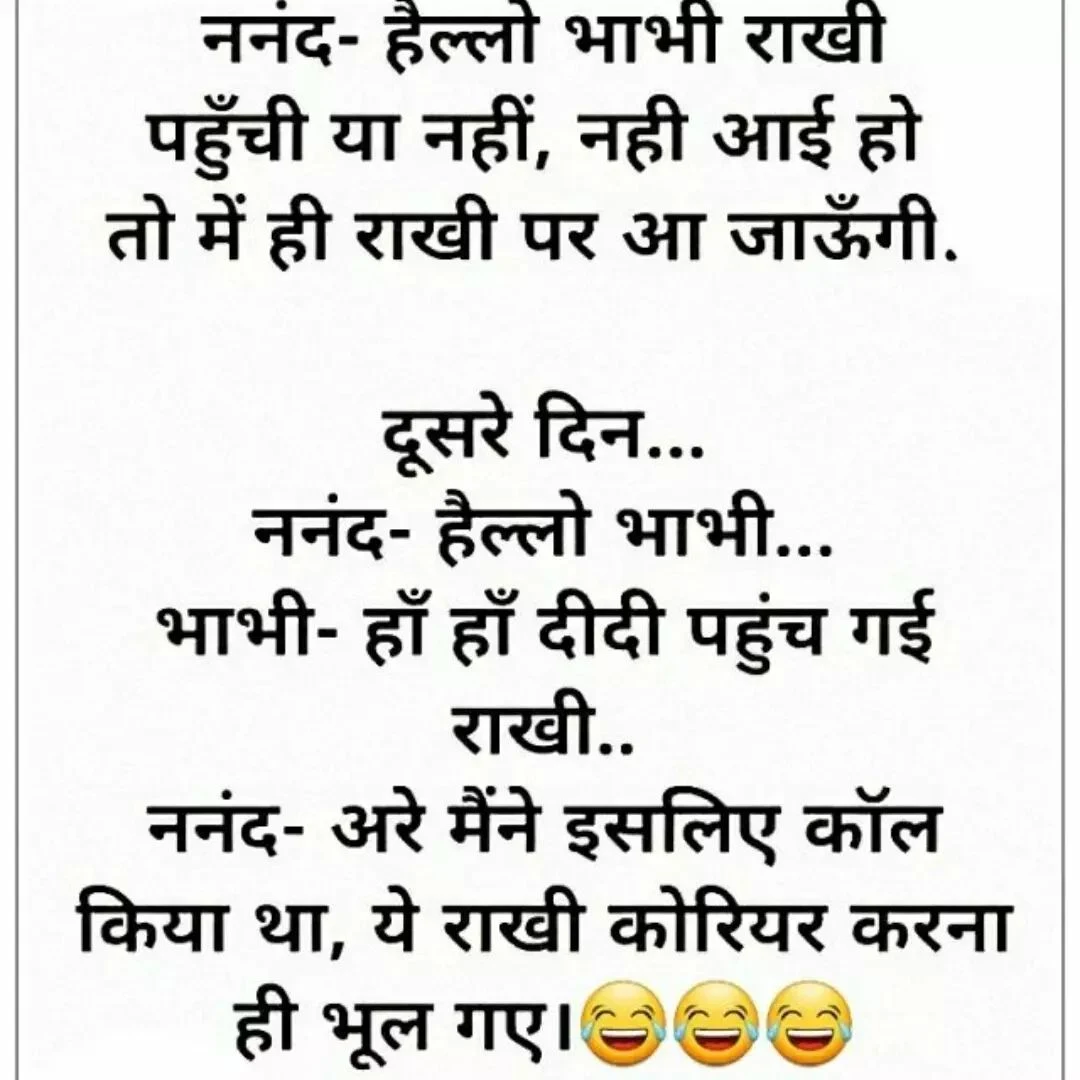 ननंद- हैल्लो भाभी राखी
पहुँची या नहीं, नही आई हो
तो में ही राखी पर आ जाऊँगी.
दूसरे दिन...
ननंद- हैल्लो भाभी...
भाभी- हाँ हाँ दीदी पहुंच गई
राखी..
ननंद- अरे मैंने इसलिए कॉल
किया था, ये राखी कोरियर करना
ही भूल गए।😂😂😂